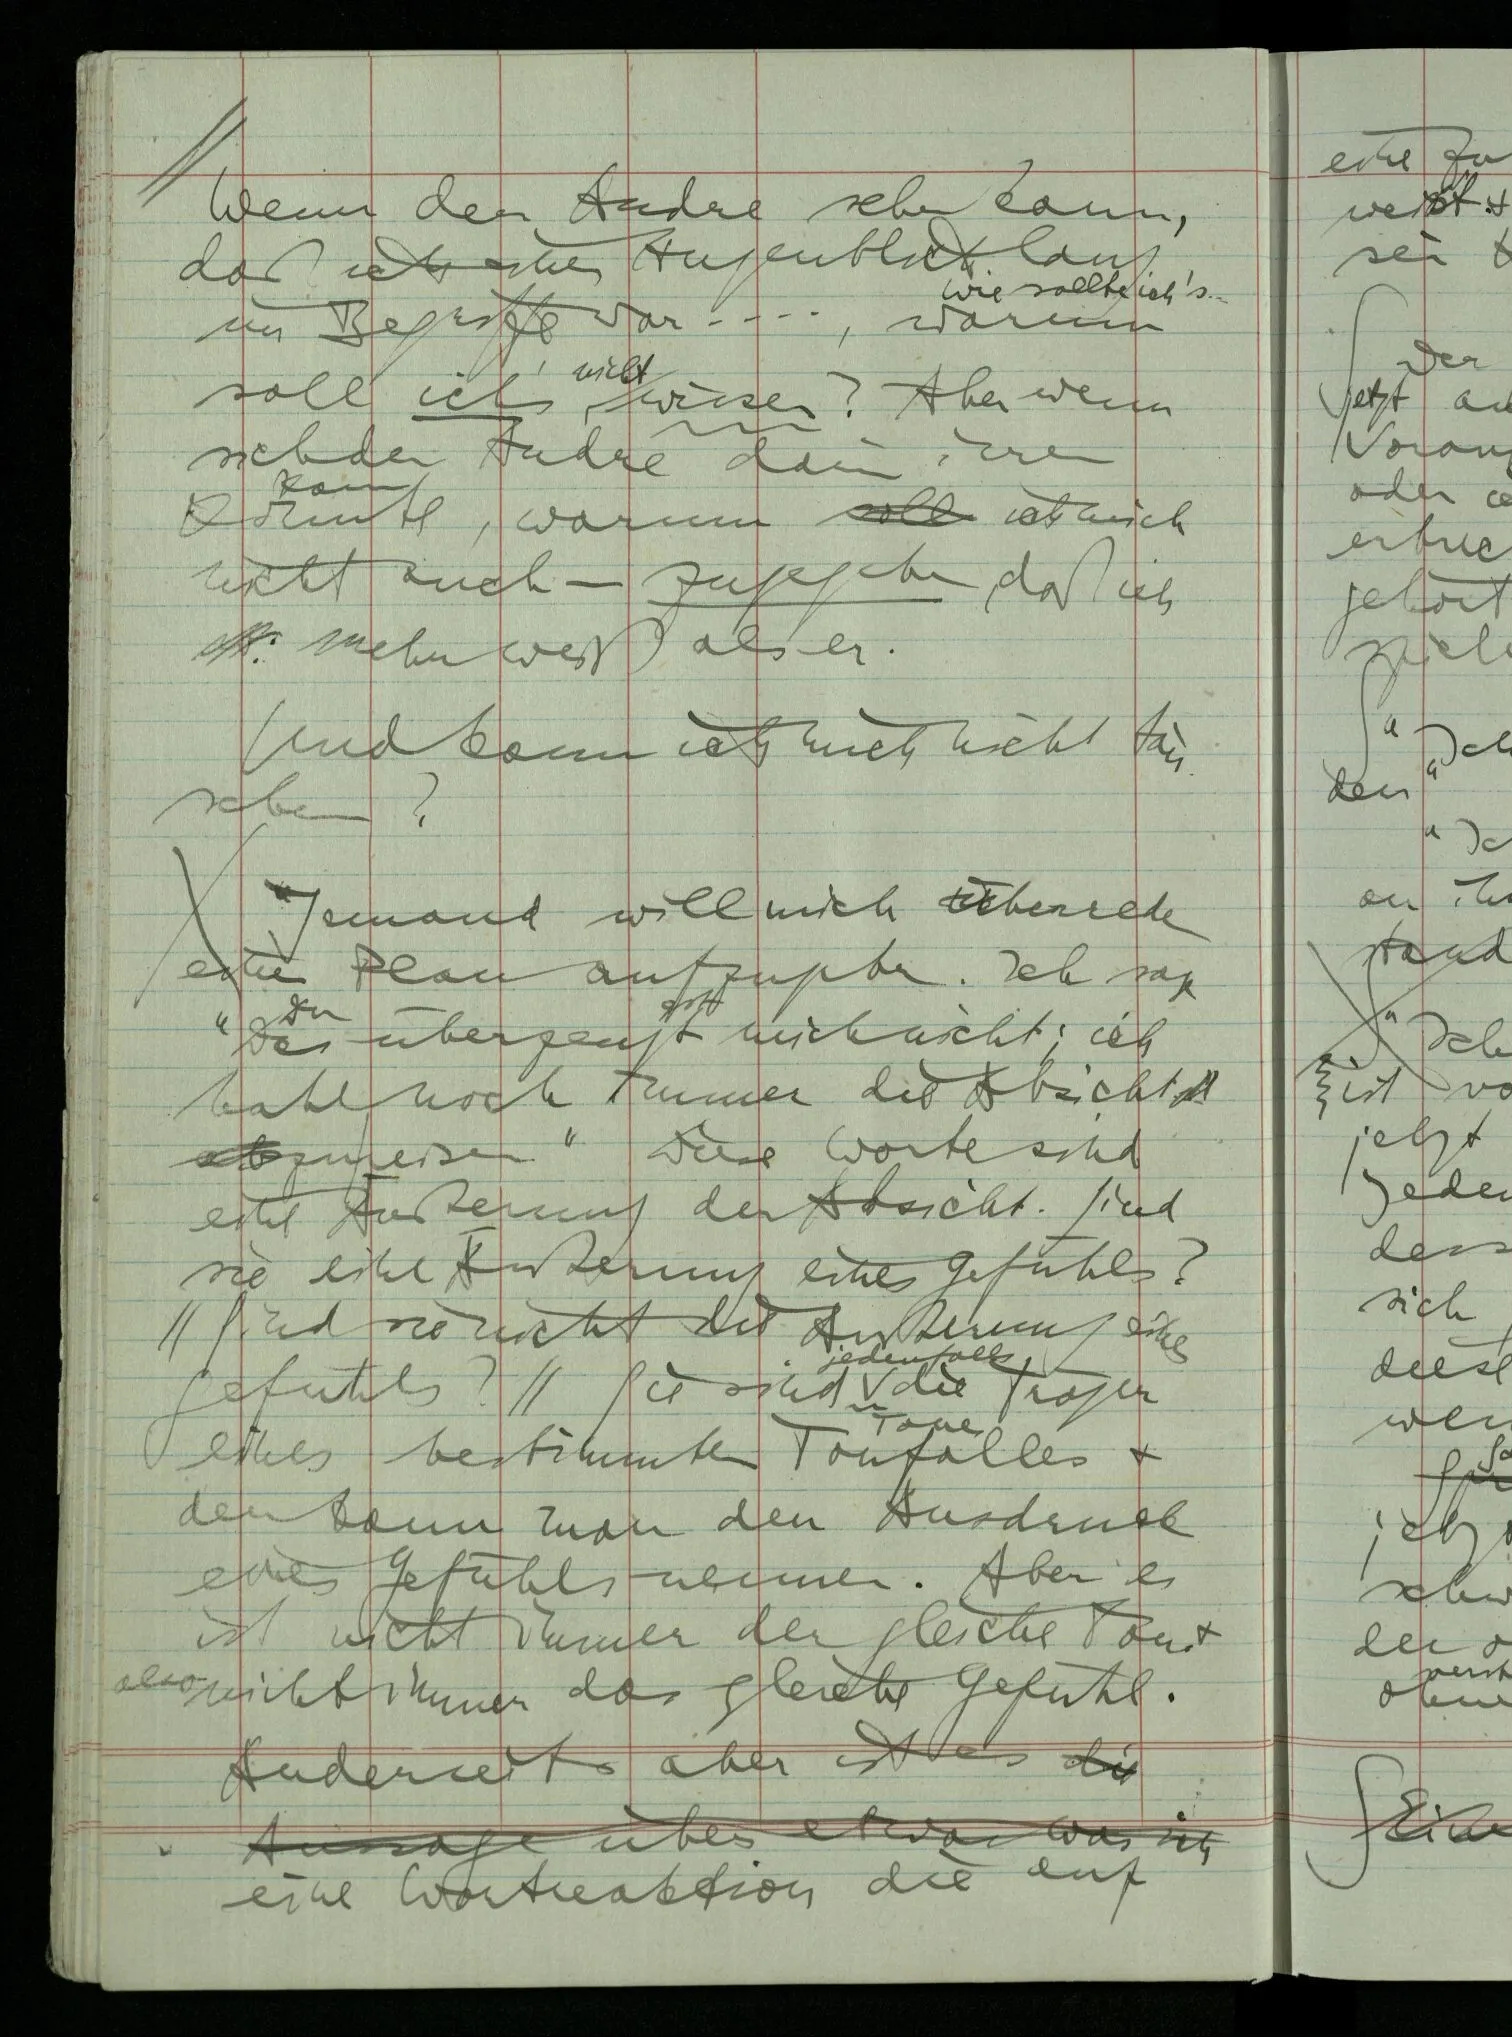 Wenn der Andre sehen kann,
daß ich einen Augenblick lang
wie sollte ich's...
im Begriffe war ----, warum
nicht
soll ich's wissen? Aber wenn
sich der Andre darin irren
kann
könnte, warum soll ich mich
nicht auch — zugegeben, daß ich
mehr weiß als er.
Und kann ich mich nicht täu-
schen?
"Jemand will mich überreden
einen Plan aufzugeben. Ich sage
Du
"Das überzeugst mich nicht; ich
habe noch immer die Absicht
abzureisen" Diese Worte sind
eine Äußerung der Absicht. Sind
sie eine Äußerung eines Gefühls?
// Sind sie nicht die Äußerung eines
Gefühls? // Sie sind jedenfalls die Träger
Tones
eines bestimmten Tonfalles +
den kann man den Ausdruck
eines Gefühls nennen. Aber es
ist nicht immer der gleiche Ton +
also nicht immer das gleiche Gefühl.
Anderseits aber ist es die
Aussage über etwas was ich
eine Wortreaktion die auf
eine
sein
Der
jetzt
oder
gehört
"Ich
den "
"Ich
stand
"Ich
ist
jetzt
sich
diese